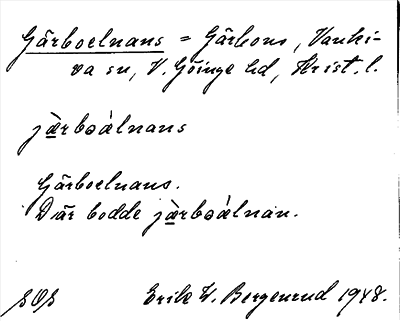 Gärboelnans = Gärhons, Vanki-
va sn, V. Göinge hd, Krist. l.
jær̀boálnans
Gärboelnans.
Där bodde jær̀boálnan.
SOS Erik W. Bergenrud 1948.